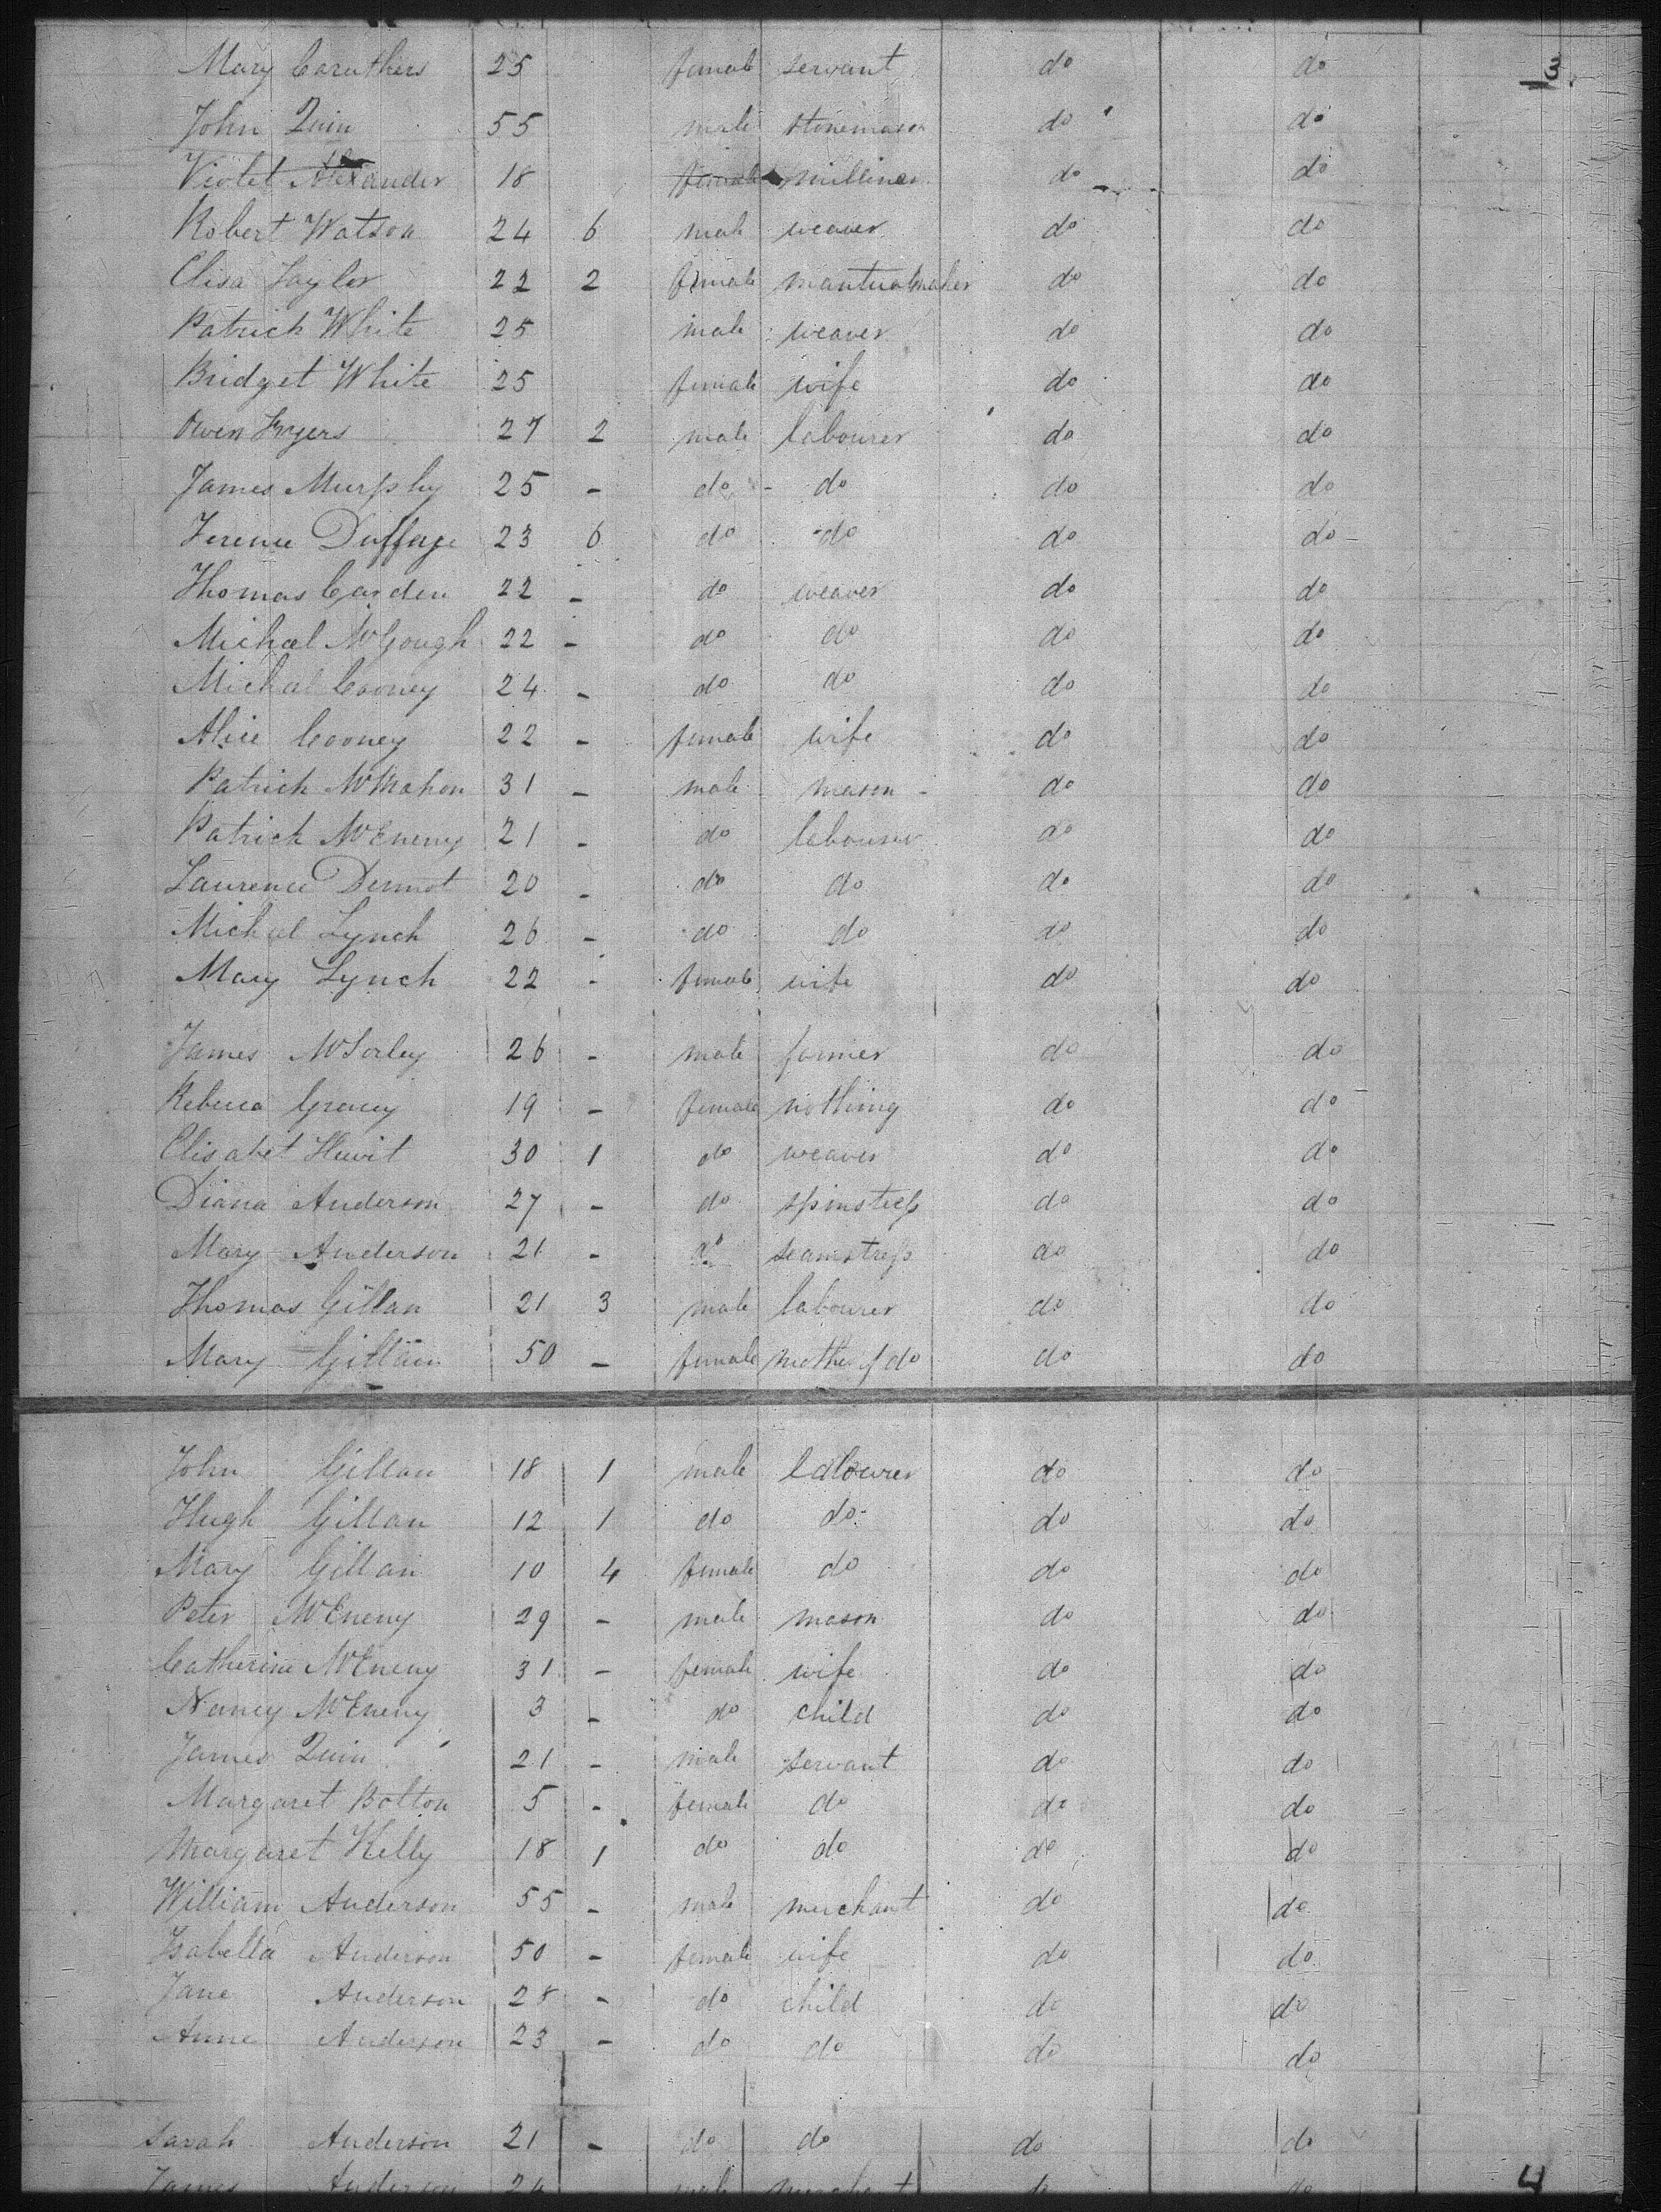 Mary Caruthers 25 female servant do do 3
John Quin 55 male stonemason do do
Violet Alexander 18 female milliner do do
Robert Watson 24 6 male weaver do do
Elisa Taylor 22 2 female mantuamaker do do
Patrick White 25 male weaver do do
Bridget White 25 female wife do do
Owen 27 2 male labourer do do
James Murphy 25 - do - do do do
Terence 23 6 do do do do -
Thomas Carden 22 - do weaver do do
Michael McGough 22 - do do do do
Michael Cooney 24 - do do do do
Alice Cooney 22 - female wife do do
Patrick McMahon 31 - male mason - do do
Patrick McEneny 21 - do labourer do do
Laurence Dermot 20 - do do do do
Michael Lynch 26 - do do do do
Mary Lynch 22 - female wife do do
James McSorley 26 - male farmer do do
Rebecca Gracey 19 - female nothing do do
Elisabet Hewit 30 1 do weaver do do
Diana Anderson 27 - do spinstress do do
Mary Anderson 21 - do seamstress do do
Thomas Gillan 21 3 male labourer do do
Mary Gillan 50 - female mother of do do do
John Gillan 18 1 male labourer do do
Hugh Gillan 12 1 do do do do
Mary Gillan 10 4 female do do do
Peter McEneny 29 - male mason do do
Catherine McEneny 31 - female wife do do
Nancy McEneny 3 - do child do do
James Quin 21 - male servant do do
Margaret Bolton 5 - female do do do
Margaret Kelly 18 1 do do do do
William Anderson 55 - male merchant do do
Isabella Anderson 50 - female wife do do
Jane Anderson 28 - do child do do
Anne Anderson 23 - do do do do
Sarah Anderson 21 - do do do do
James Anderson 24 male merchant do do 4